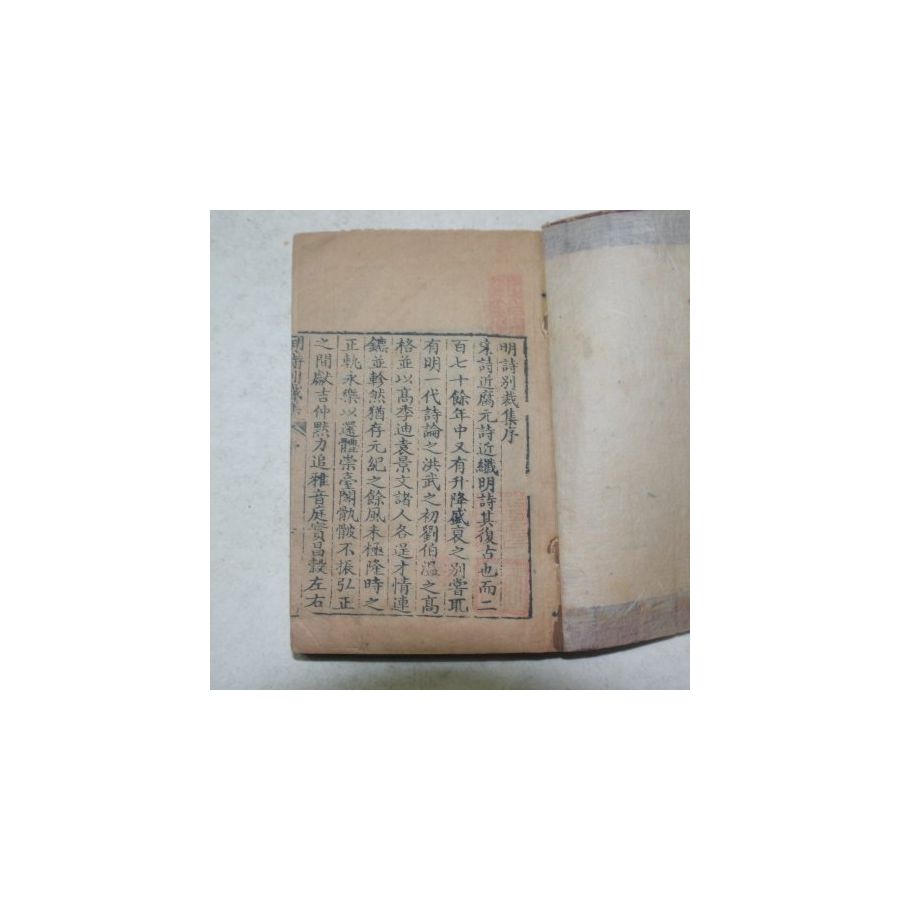 明詩別裁集序
宋詩近腐元詩近纖明詩其復古也而二
百七十餘年中又有升降盛衰之別嘗取
有明一代詩論之洪武之初劉伯溫之高
格並以高季迪袁景文諸人各逞才情連
鑣並軫然猶存元紀之餘風未極隆時之
正軌永樂以還體崇臺閣骫骳不振弘正
之間獻吉仲默力追雅音庭實昌穀左右
明詩別裁集